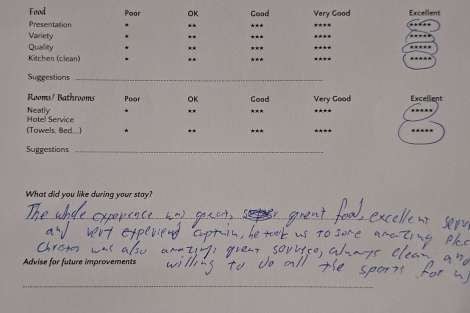 Food Poor OK Good Very Good Excellent
Presentation * ** *** **** *****
Variety * ** *** **** *****
Quality * ** *** **** *****
Kitchen (clean) * ** *** **** *****
Suggestions
Rooms/ Bathrooms Poor OK Good Very Good Excellent
Neatly * ** *** **** *****
Hotel Service
(Towels, Bed...) * ** *** **** *****
Suggestions
What did you like during your stay?
The whole experience was great, great food, excellent serv
and very captain, he took us to some amazing plac
was also amazing, great service, always clean and
Advise for future improvements
willing to do all the sports for us